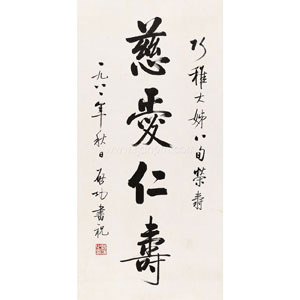 巧稚大姊八旬榮壽
慈愛仁壽
一九八一年秋日启功書祝